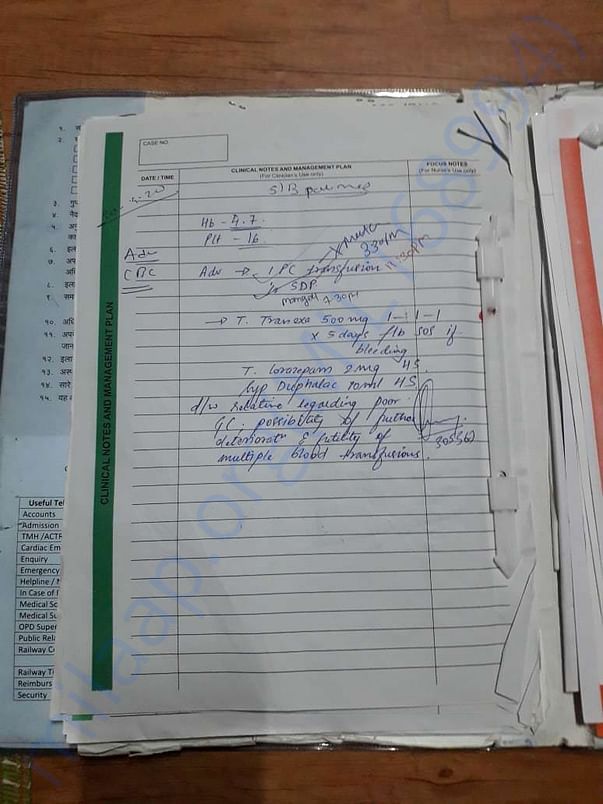 CASE NO.
CLINICAL NOTES AND MANAGEMENT PLAN
(For Clinician's Use only)
FOCUS NOTES
(For Nurse's Use only)
DATE / TIME
S/B pal med
Hb - 4.7
Plt - 16
Adv
CBC
Adv → 1 PC transfusion
330pm
11:30pm
SDP
7.30pm
→ T. Tranexa 500mg 1-1-1
x 5 days f/b SOS if
bleeding
T. lorazepam 2mg HS.
Syp Duphalac 10ml HS.
d/w relative regarding poor
GC, possibility of further
deterioratn & futility of
multiple blood transfusions.
CLINICAL NOTES AND MANAGEMENT PLAN
Useful Tel
Accounts
Admission
TMH / ACTR
Cardiac Em
Enquiry
Emergency
Helpline /
In Case of
Medical So
Medical Su
OPD Super
Public Rela
Railway C
Railway Ti
Reimburs
Security